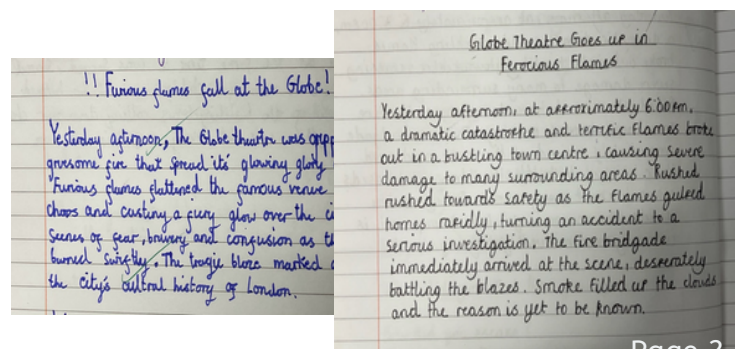 !! Furious flames fall at the Globe!
Yesterday afternoon, The Globe theatre was
gruesome fire that spread its' glowing glory
Furious flames flattened the famous venue
chaos and casting a fiery glow over the
Scenes of fear, bravery and confusion as
burned swiftly. The tragic blaze marked
the city's cultral history of London.
Globe Theatre Goes up in
Ferocious Flames
Yesterday afternoon, at approximately 6:00pm,
a dramatic catastrophe and terrific flames broke
out in a bustling town centre, causing severe
damage to many surrounding areas. Rushed
rushed towards safety as the flames gulfed
homes rapidly, turning an accident to a
serious investigation. The fire bridgade
immediately arrived at the scene, desperately
battling the blazes. Smoke filled up the clouds
and the reason is yet to be known.
Page 2